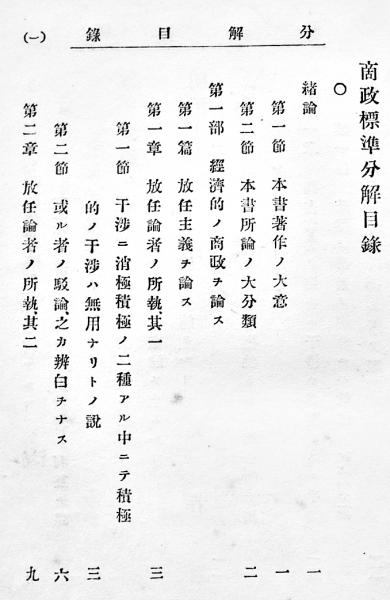 分解目錄 (一)
商政標準分解目錄
○
緖論 一
第一節 本書著作ノ大意 一
第二節 本書所論ノ大分類 二
第一部 經濟的ノ商政ヲ論ス
第一篇 放任主義ヲ論ス
第一章 放任論者ノ所執、其一 三
第一節 干涉ニ消極積極ノ二種アル中ニテ積極
的ノ干涉ハ無用ナリトノ說 三
第二節 或ル者ノ駁論、之カ辨白ヲナス 六
第二章 放任論者ノ所執、其二 九